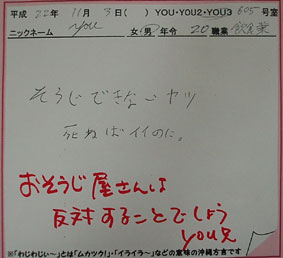 平成 22年 11月 3日( ) YOU・YOU2・YOU3 605号室
ニックネーム you 女・男 年令 20 職業 飲食業
そうじできないヤツ
死ねばイイのに。
おそうじ屋さんは
反対することでしょう
you兄
※「わじわじぃ～」とは「ムカツク!」・「イライラ～」などの意味の沖縄方言です